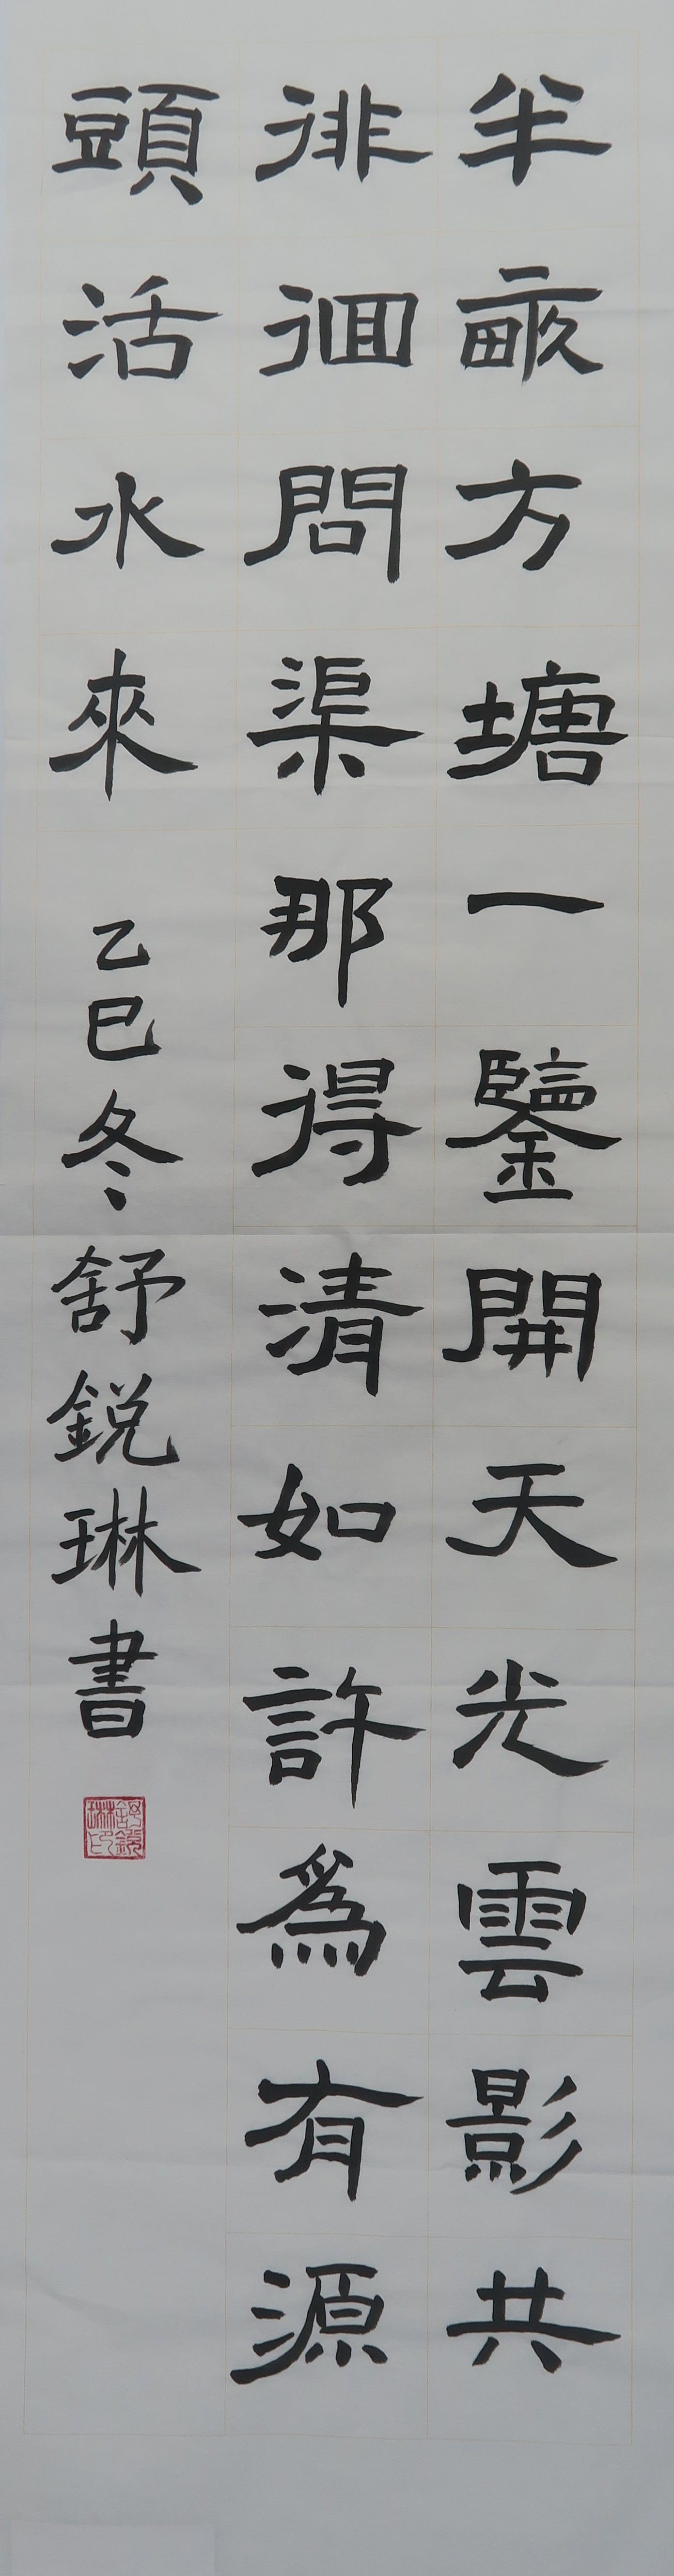 半畝方塘一鑒開天光雲影共
徘徊問渠那得清如許為有源
頭活水來 乙巳冬 舒鋭琳書
舒鋭琳印